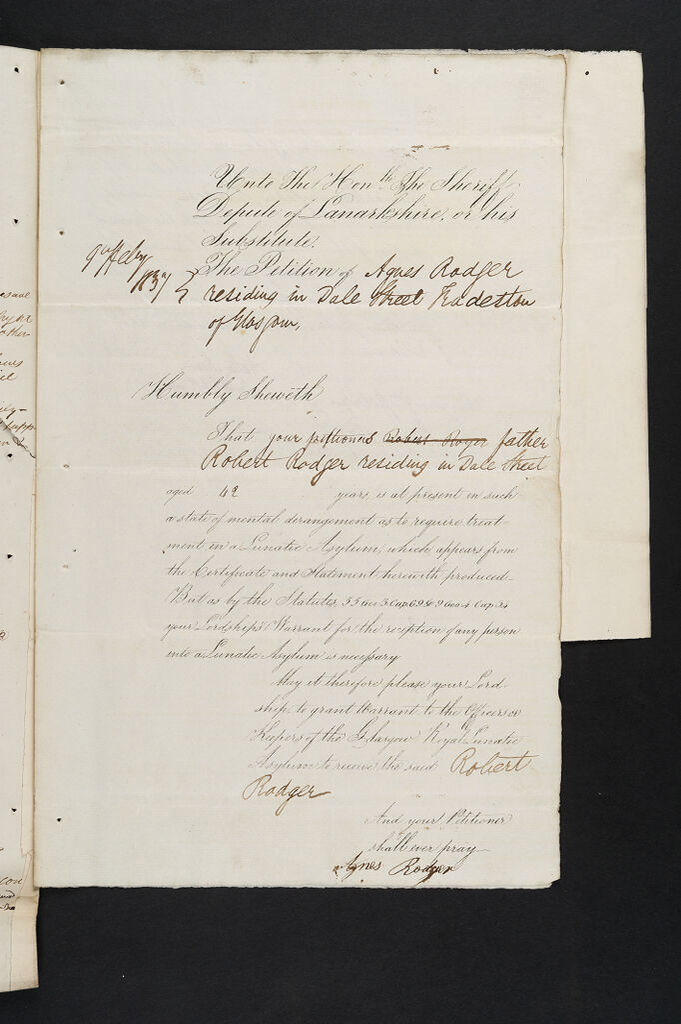 Unto The Honble The Sheriff
Depute of Lanarkshire, or his
Substitute,
9th Feby
1837
The Petition of Agnes Rodger
residing in Dale Street Tradeston
of Glasgow,
Humbly Sheweth
That your petitioners Robert Roger father
Robert Rodger residing in Dale Street
aged 42 years, is at present in such
a state of mental derangement as to require treat-
ment in a Lunatic Asylum, which appears from
the Certificate and Statement herewith produced.
But as by the Statutes 55 Geo 3 Cap 69 & 9 Geo 4 Cap 34
your Lordship's Warrant for the reception of any person
into a Lunatic Asylum is necessary
May it therefore please your Lord-
ship to grant Warrant to the Officers or
Keepers of the Glasgow Royal Lunatic
Asylum to receive the said Robert
Rodger
And your Petitioner
shall ever pray
Agnes Rodger